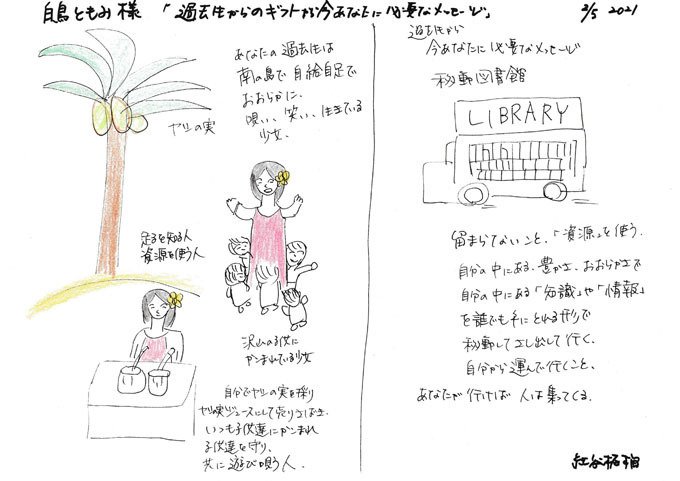 白鳥ともみ様 「過去生からのギフトから今あなたに必要なメッセージ」 2/5 2021
あなたの過去生は
南の島で自給自足で
おおらかに、
唄い、笑い、生きている
少女。
ヤシの実
足るを知る人
資源を使う人
沢山の子供に
かこまれている少女
自分でヤシの実を採り
ヤシの実ジュースにして売りさばき、
いつも子供達にかこまれ
子供達を守り、
共に遊び唄う人。
過去生から
今あなたに必要なメッセージ
移動図書館
LIBRARY
留まらないこと、「資源」を使う。
自分の中にある、豊かさ、おおらかさで
自分の中にある「知識」や「情報」
を誰でも手にとれる形で
移動して差し出して行く。
自分から運んで行くこと、
あなたが行けば人は集ってくる。